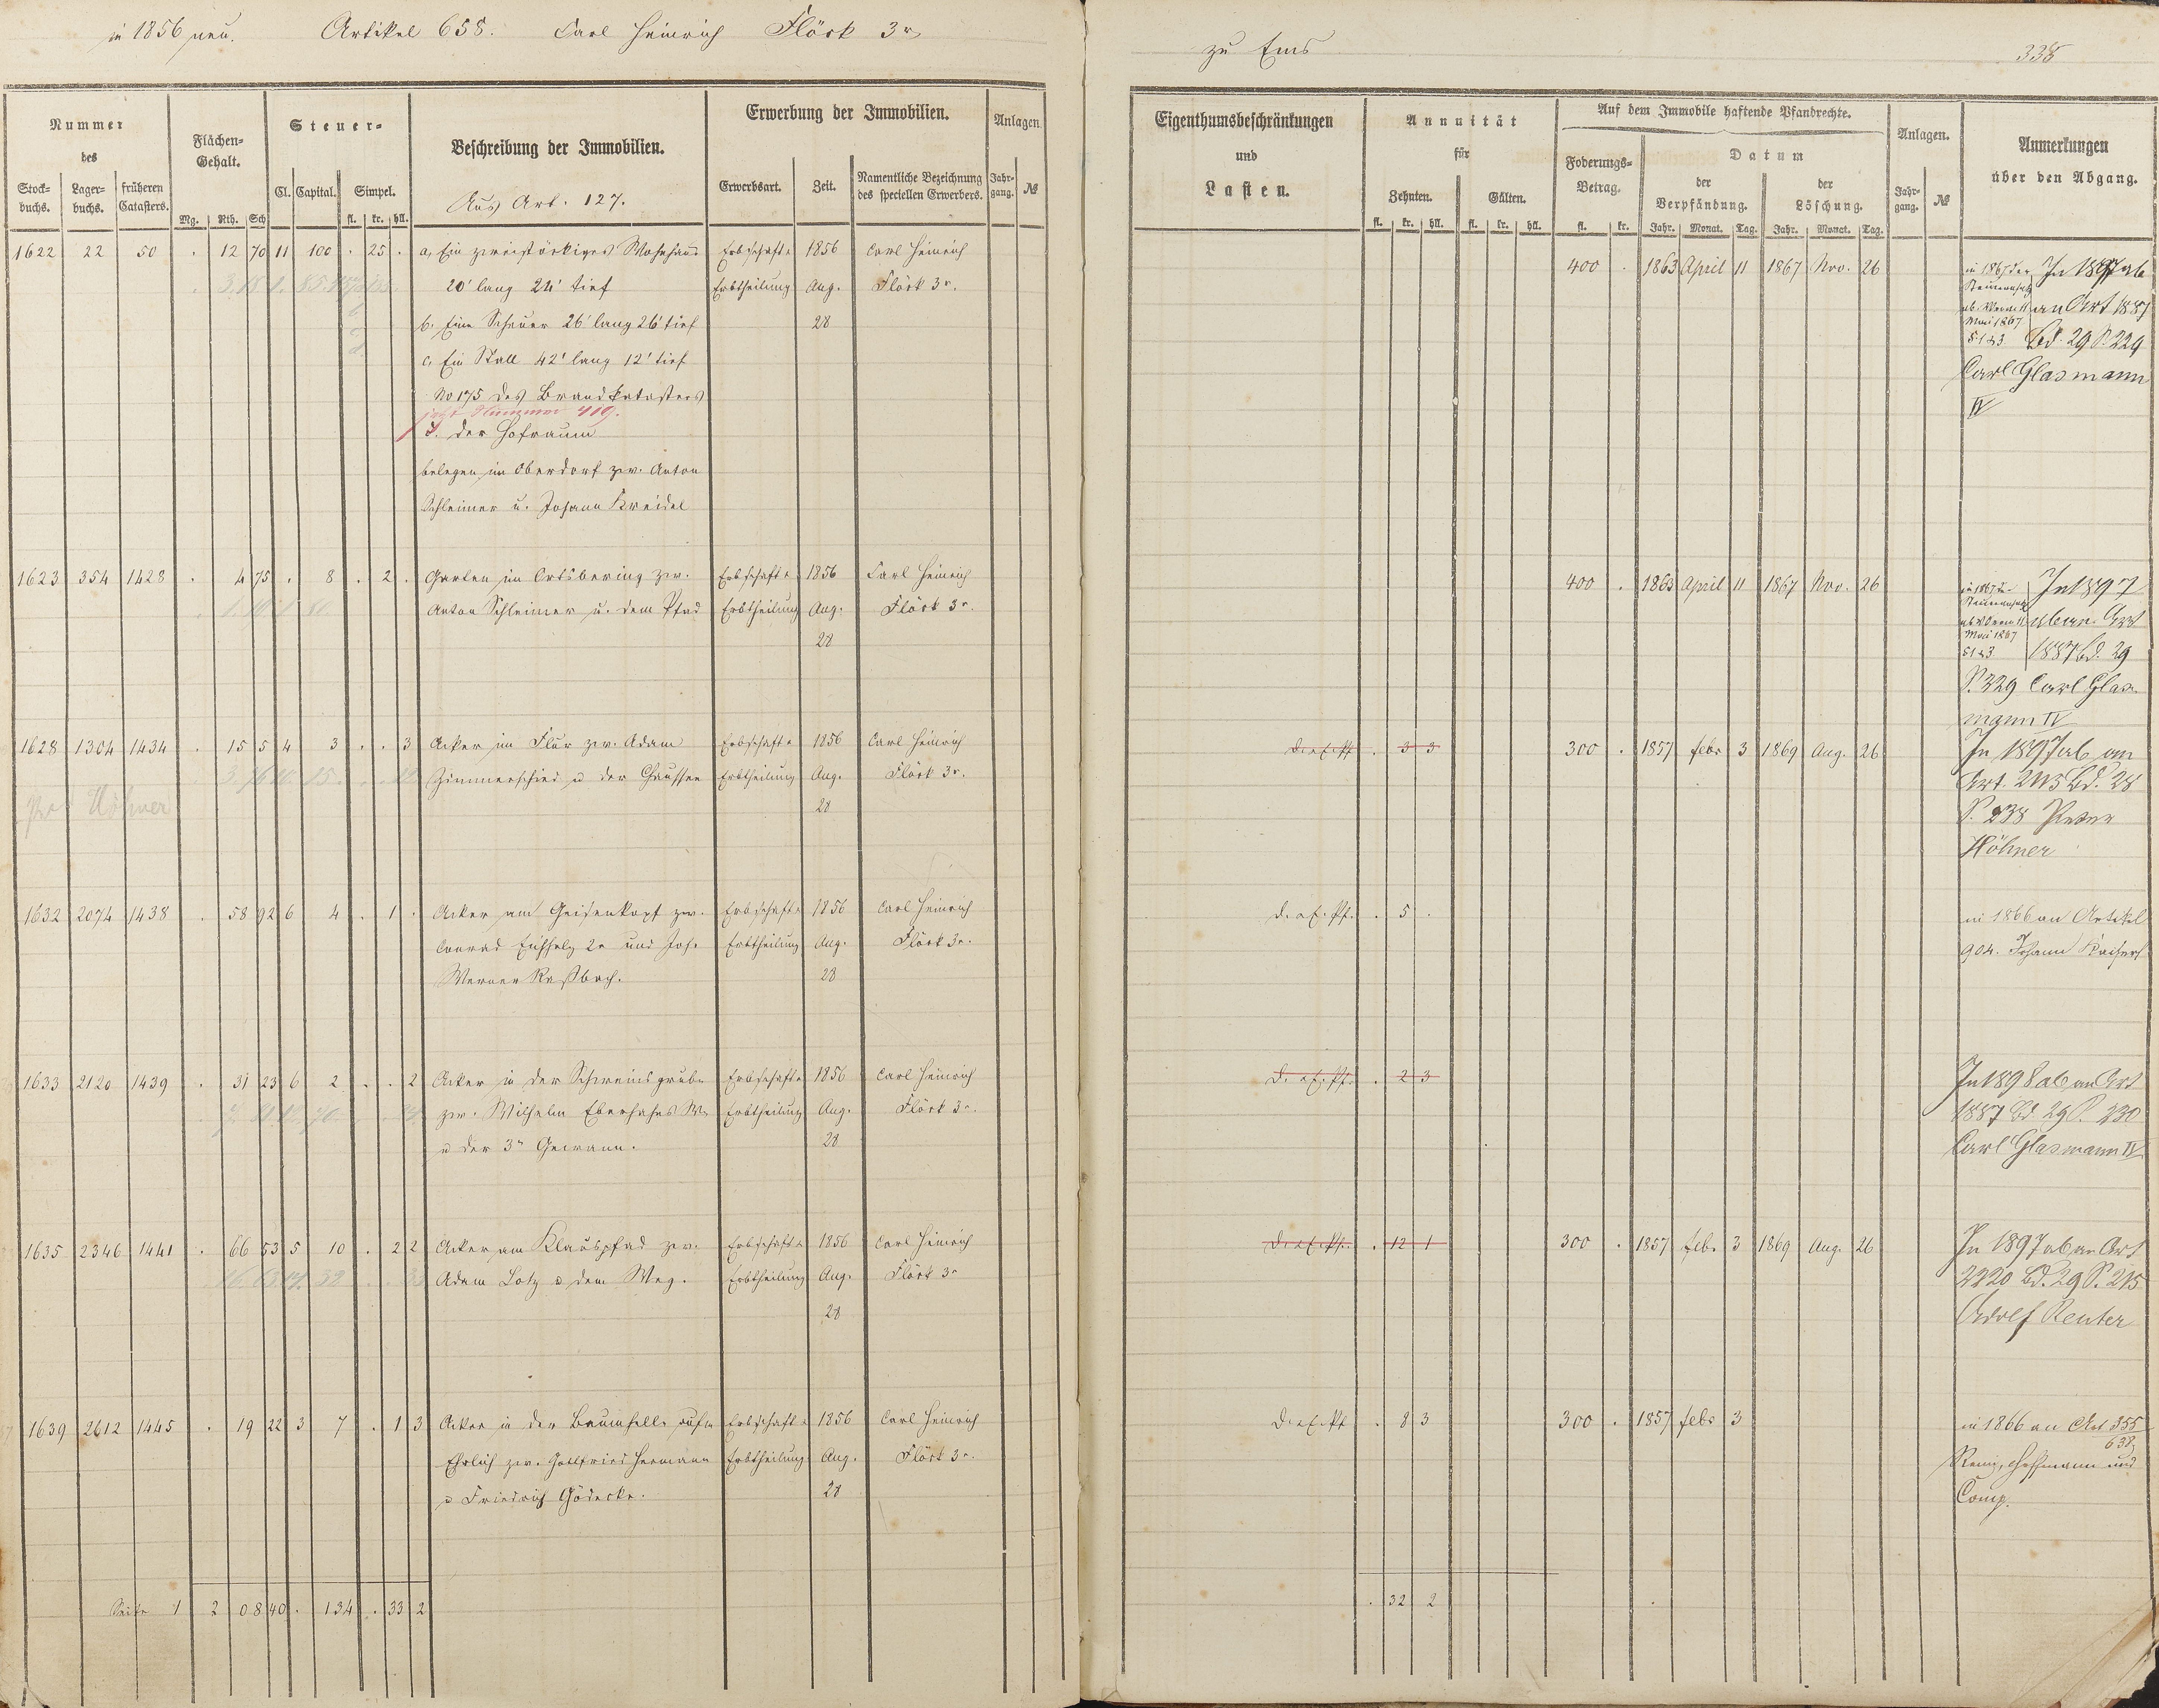 in 1856 neu. Artikel 658. Carl Heinrich Flöck 3r
zu Ems 338
Nummer des
Stock-buchs. Lager-buchs. früheren Catasters.
Flächen-Gehalt.
Mg. Rth. Sch
Steuer-
Cl. Capital. Simpel.
fl. kr. hll.
Beschreibung der Immobilien.
Aus Art. 127.
Erwerbung der Immobilien.
Erwerbsart. Zeit. Namentliche Bezeichnung des speciellen Erwerbers.
Anlagen
Jahr-gang. №
Eigenthumsbeschränkungen und Lasten.
Annuität für
Zehnten. Gülten.
fl. kr. hll. fl. kr. hll.
Auf dem Immobile haftende Pfandrechte.
Foderungs-Betrag.
fl. kr.
Datum
der Verpfändung. der Löschung.
Jahr. Monat. Tag. Jahr. Monat. Tag.
Anlagen.
Jahr-gang. №
Anmerkungen über den Abgang.
1622 22 50 . 12 70 11 100 . 25 . a, Ein zweistöckiges Wohnhaus Erbschaft u. 1856 Carl Heinrich
20' lang 24' tief Erbtheilung Aug. Flöck 3r.
b. Eine Scheuer 26' lang 26' tief 28
c, Ein Stall 42' lang 12' tief
No 175 des Brandkatasters
jetzt Nummer 419.
d. der Hofraum
belegen im Oberdorf zw. Anton
Schleimer u. Johann Kreidel
400 . 1863 April 11 1867 Nov. 26
In 1897 ab
an Art 1887
Bd. 29 S. 229
Carl Glasmann
IV
1623 354 1428 . 4 75 . 8 . 2 . Garten im Ortsbering zw. Erbschaft u. 1856 Carl Heinrich
Anton Schleimer u. dem Pfad Erbtheilung Aug. Flöck 3r.
28
400 . 1863 April 11 1867 Nov. 26
In 1897
ab an Art
1887 Bd. 29
S. 229 Carl Glas-
mann IV
1628 1304 1434 . 15 5 4 3 . . 3 Acker im Flur zw. Adam Erbschaft u. 1856 Carl Heinrich
Zimmerschied u der Chaussee Erbtheilung Aug. Flöck 3r.
28
Höhner
D. a. E. Pf. . 3 3 300 . 1857 Febr 3 1869 Aug. 26
In 1897 ab an
Art. 2115 Bd. 28
S. 238 Peter
Höhner
1632 2074 1438 . 58 92 6 4 . 1 . Acker am Geisenkopf zw. Erbschaft u. 1856 Carl Heinrich
Conrad Eichholz 2r und Joh. Erbtheilung Aug. Flöck 3r.
Werner Roßbach. 28
D. a. E. Pf. . 5 .
in 1866 an Artikel
904. Johann
1633 2120 1439 . 31 23 6 2 . . 2 Acker in der Schweinsgrube Erbschaft u. 1856 Carl Heinrich
zw. Wilhelm Eberhahns Erbtheilung Aug. Flöck 3r.
u der 3n Gewann. 28
D. a. E. Pf. . 2 3
In 1898 ab an Art
1887 Bd 29 S. 230
Carl Glasmann IV
1635 2346 1441 . 66 53 5 10 . 2 2 Acker am Klauspfad zw. Erbschaft u. 1856 Carl Heinrich
Adam Lotz u dem Weg. Erbtheilung Aug. Flöck 3r
28
D. a. E. Pf. . 12 1 300 . 1857 Feb. 3 1869 Aug. 26
In 1897 ab an Art
2220 Bd. 29 S. 215
Adolf Reuter
1639 2612 1445 . 19 22 3 7 . 1 3 Acker in der Baumhelle Erbschaft u. 1856 Carl Heinrich
Ehrlich zw. Gottfried Hermann Erbtheilung Aug. Flöck 3r.
u Friedrich Gödecke. 28
D. a. E. Pf. . 8 3 300 . 1857 Febr 3
in 1866 an Art 355
638
Hoffmann und
Comp.
Seite 1 2 08 40 . 134 . 33 2
. 32 2